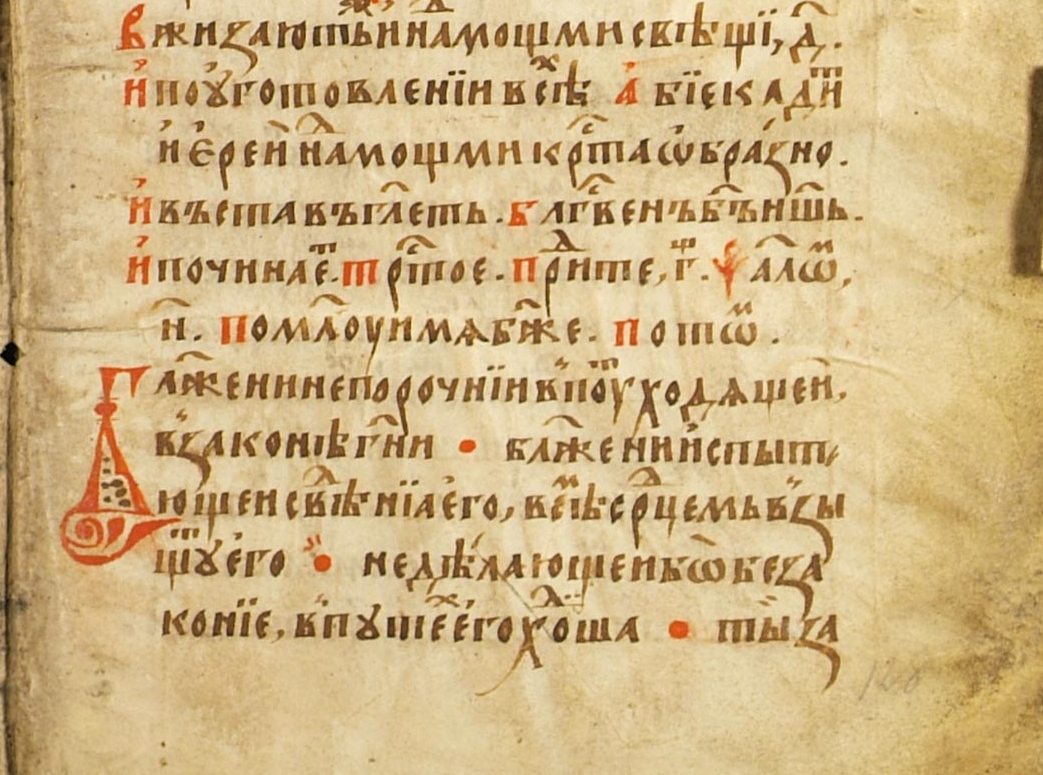 вжизаютьже и надъ мощми свѣщї, д҃.
и҆ поуготовленїи всѣхъ а҆бїе кадитъ
и҆є҆рей надъ мощми крⷭ҇таѡ҆бразно.
и҆ въставъ гл҃еть. блгⷭ҇венъ б҃ъ н҃шь.
и҆ починае҆тъ. трⷭ҇тое. прїидѣте, г҃. ѱалѡⷨ,
н҃. помл҃оуи мѧ бж҃е. потѡⷨ.
Бл҃жени непорочнїи в̾поу҆ть ходѧщей,
в̾законѣ гн҃и • бл҃жений и҆спыт
ющеи свѣдѣнїа е҆го, всѣмъ срдⷣцемь в̾зы
щутъ е҆го • не дѣлающеи бѡ҆ беза
конїе, в̾путехъ е҆го ходиша • ты за